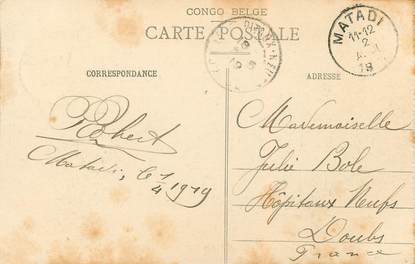 CONGO BELGE
CARTE POSTALE
CORRESPONDANCE
ADRESSE
MATADI
11-12
2
19
Robert
Matadi, le 1/4 1919
Mademoiselle
Julie Bole
Hôpitaux Neufs
Doubs
France